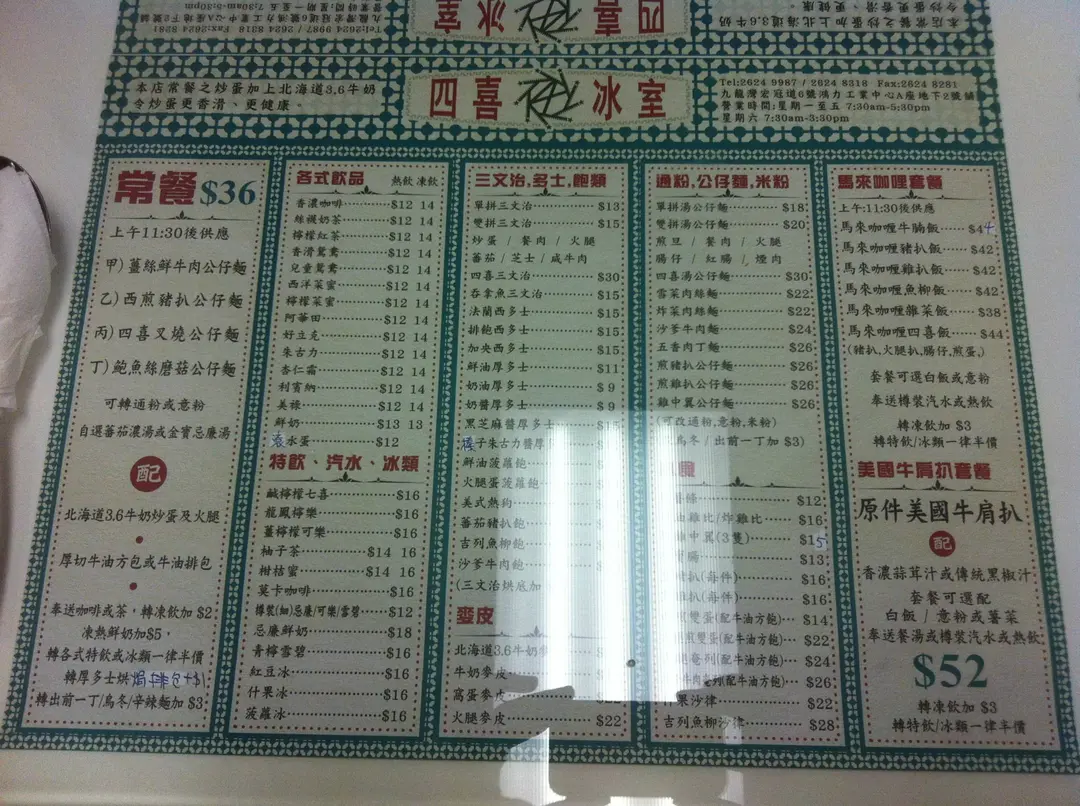 本店常餐之炒蛋加上北海道3.6牛奶
令炒蛋更香滑、更健康。
四喜冰室
Tel:2624 9987 / 2624 8318 Fax:2624 8281
九龍灣宏冠道6號鴻力工業中心A座地下2號舖
營業時間:星期一至五 7:30am-5:30pm
星期六 7:30am-3:30pm
常餐 $36
上午11:30後供應
甲)薑絲鮮牛肉公仔麵
乙)西煎豬扒公仔麵
丙)四喜叉燒公仔麵
丁)鮑魚絲磨菇公仔麵
可轉通粉或意粉
自選蕃茄濃湯或金寶忌廉湯
配
北海道3.6牛奶炒蛋及火腿
厚切牛油方包或牛油排包
奉送咖啡或茶,轉凍飲加 $2
凍熱鮮奶加$5,
轉各式特飲或冰類一律半價
轉厚多士烘焗排包+$1
轉出前一丁/烏冬/辛辣麵加 $3
各式飲品 熱飲 凍飲
香濃咖啡 $12 14
絲襪奶茶 $12 14
檸檬紅茶 $12 14
香滑鴛鴦 $12 14
兒童鴛鴦 $12 14
西洋菜蜜 $12 14
檸檬菜蜜 $12 14
阿華田 $12 14
好立克 $12 14
朱古力 $12 14
杏仁霜 $12 14
利賓納 $12 14
美祿 $12 14
鮮奶 $13 13
滾水蛋 $12
特飲、汽水、冰類
鹹檸檬七喜 $16
龍鳳檸樂 $16
薑檸檬可樂 $16
柚子茶 $14 16
柑桔蜜 $14 16
莫卡咖啡 $16
樽裝(細)忌廉/可樂/雪碧 $12
忌廉鮮奶 $18
青檸雪碧 $16
紅豆冰 $16
什果冰 $16
菠蘿冰 $16
三文治,多士,飽類
單拼三文治 $13
雙拼三文治 $15
炒蛋 / 餐肉 / 火腿
蕃茄 / 芝士 / 咸牛肉
四喜三文治 $30
吞拿魚三文治 $15
法蘭西多士 $15
排飽西多士 $15
加央西多士 $15
鮮油厚多士 $11
奶油厚多士 $ 9
奶醬厚多士 $ 9
黑芝麻醬厚多士 $15
子朱古力醬厚
鮮油菠蘿飽
火腿蛋菠蘿飽
美式熱狗
蕃茄豬扒飽
吉列魚柳飽
沙爹牛肉飽
(三文治烘底加
麥皮
北海道3.6牛奶
牛奶麥皮
窩蛋麥皮
火腿麥皮 $22
通粉,公仔麵,米粉
單拼湯公仔麵 $18
雙拼湯公仔麵 $20
煎旦 / 餐肉 / 火腿
腸仔 / 紅腸 / 煙肉
四喜湯公仔麵 $30
雪菜肉絲麵 $22
炸菜肉絲麵 $22
沙爹牛肉麵 $24
五香肉丁麵 $26
煎豬扒公仔麵 $26
煎雞扒公仔麵 $26
雞中翼公仔麵 $26
(可改通粉,意粉,米粉)
烏冬 / 出前一丁加 $3)
條 $12
雞比/炸雞比 $16
中翼(3隻) $15
腸 $13
豬扒(每件) $16
扒(每件) $16
雙蛋(配牛油方飽) $14
雙蛋(配牛油方飽) $22
奄列(配牛油方飽) $24
奄列(配牛油方飽) $26
果沙律 $22
吉列魚柳沙律 $28
馬來咖喱套餐
上午:11:30後供應
馬來咖喱牛腩飯 $44
馬來咖喱豬扒飯 $42
馬來咖喱雞扒飯 $42
馬來咖喱魚柳飯 $42
馬來咖喱雜菜飯 $38
馬來咖喱四喜飯 $44
(豬扒,火腿扒,腸仔,煎蛋,)
套餐可選白飯或意粉
奉送樽裝汽水或熱飲
轉凍飲加 $3
轉特飲/冰類一律半價
美國牛肩扒套餐
原件美國牛肩扒
配
香濃蒜茸汁或傳統黑椒汁
套餐可選配
白飯 / 意粉或薯菜
奉送餐湯或樽裝汽水或熱飲
$52
轉凍飲加 $3
轉特飲/冰類一律半價